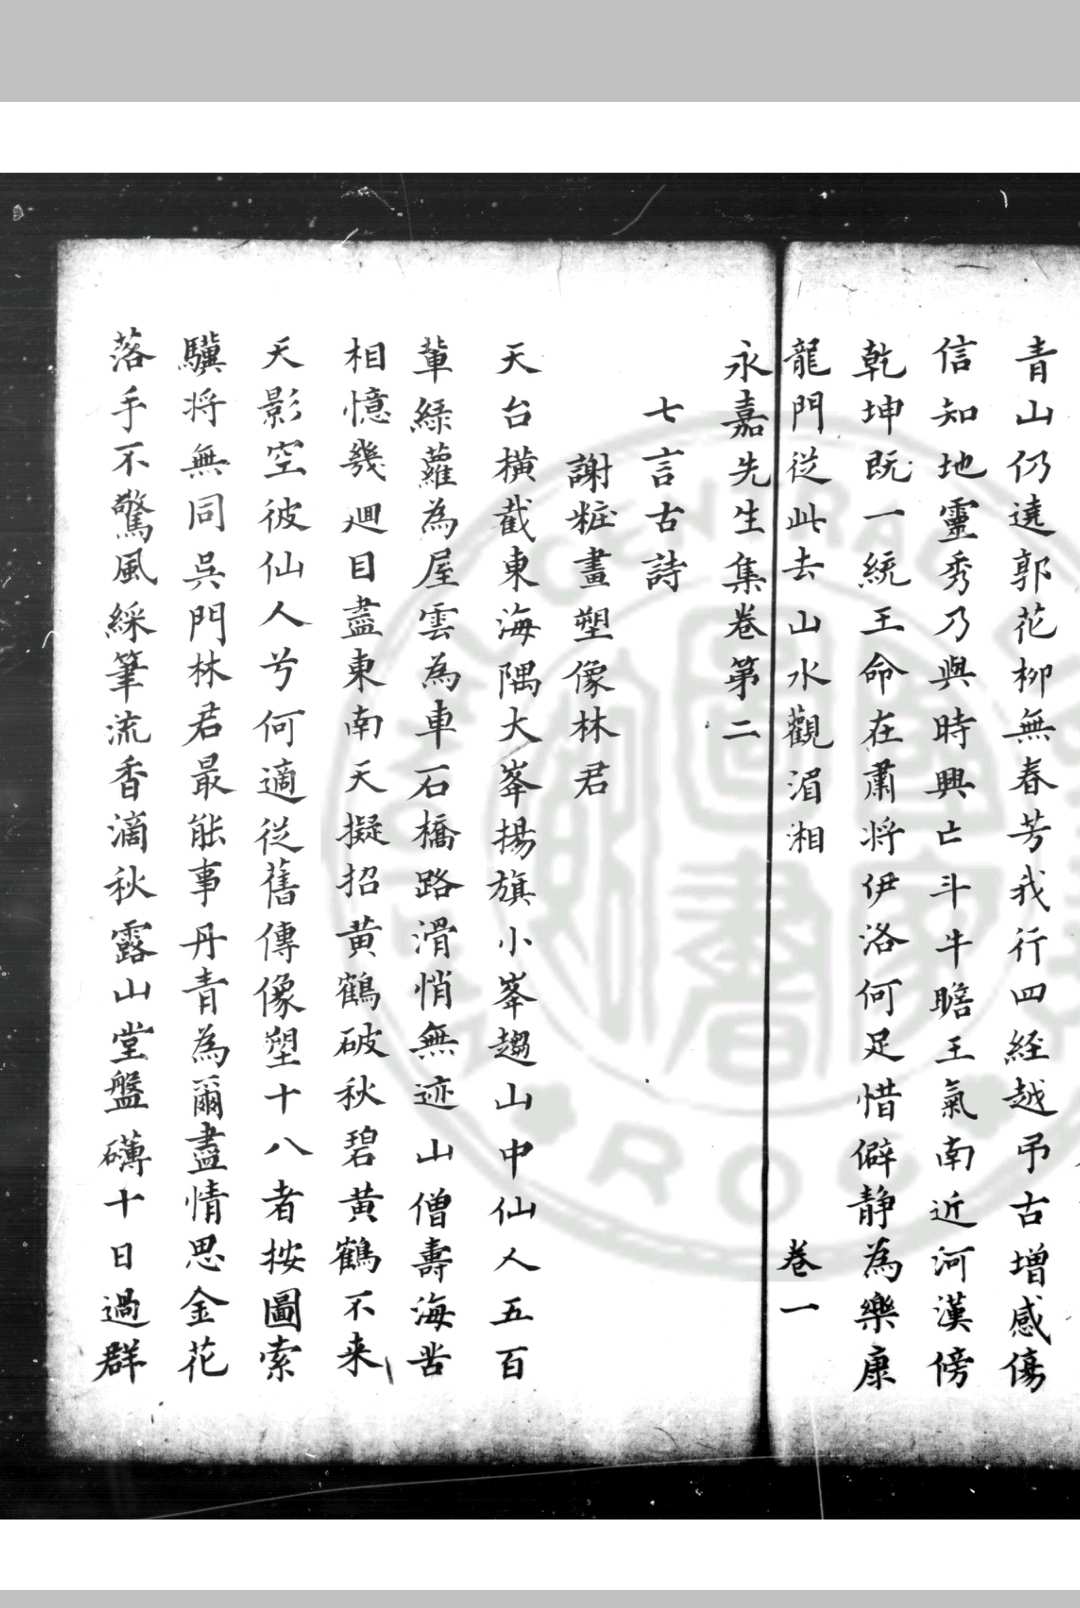 青山仍遶郭花柳無春芳我行四経越弔古增感傷
信知地靈秀乃與時興亡斗牛瞻王氣南近河漢傍
乾坤既一統王命在肅將伊洛何足惜僻静為樂康
龍門従此去山水觀湄湘
卷一
永嘉先生集卷第二
七言古詩
謝粧畫塑像林君
天台橫截東海隅大峯揚旗小峯趨山中仙人五百
輩緑蘿為屋雲為車石橋路滑悄無迹山僧壽海苦
相憶幾迴目盡東南天擬招黄鶴破秋碧黄鶴不来
天影空彼仙人兮何適従舊傳像塑十八者按圖索
驥将無同吳門林君最能事丹青為爾盡情思金花
落手不驚風綵筆流香滴秋露山堂盤礴十日過群
CENTRAL